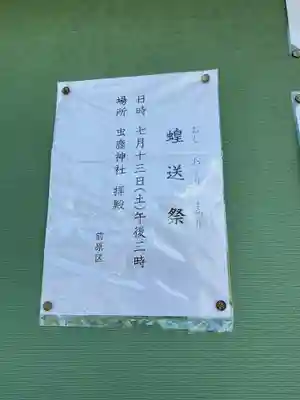 蝗送祭
むしおくりまつり
日時 七月十三日(土)午後二時
場所 虫鹿神社 拝殿
前原区